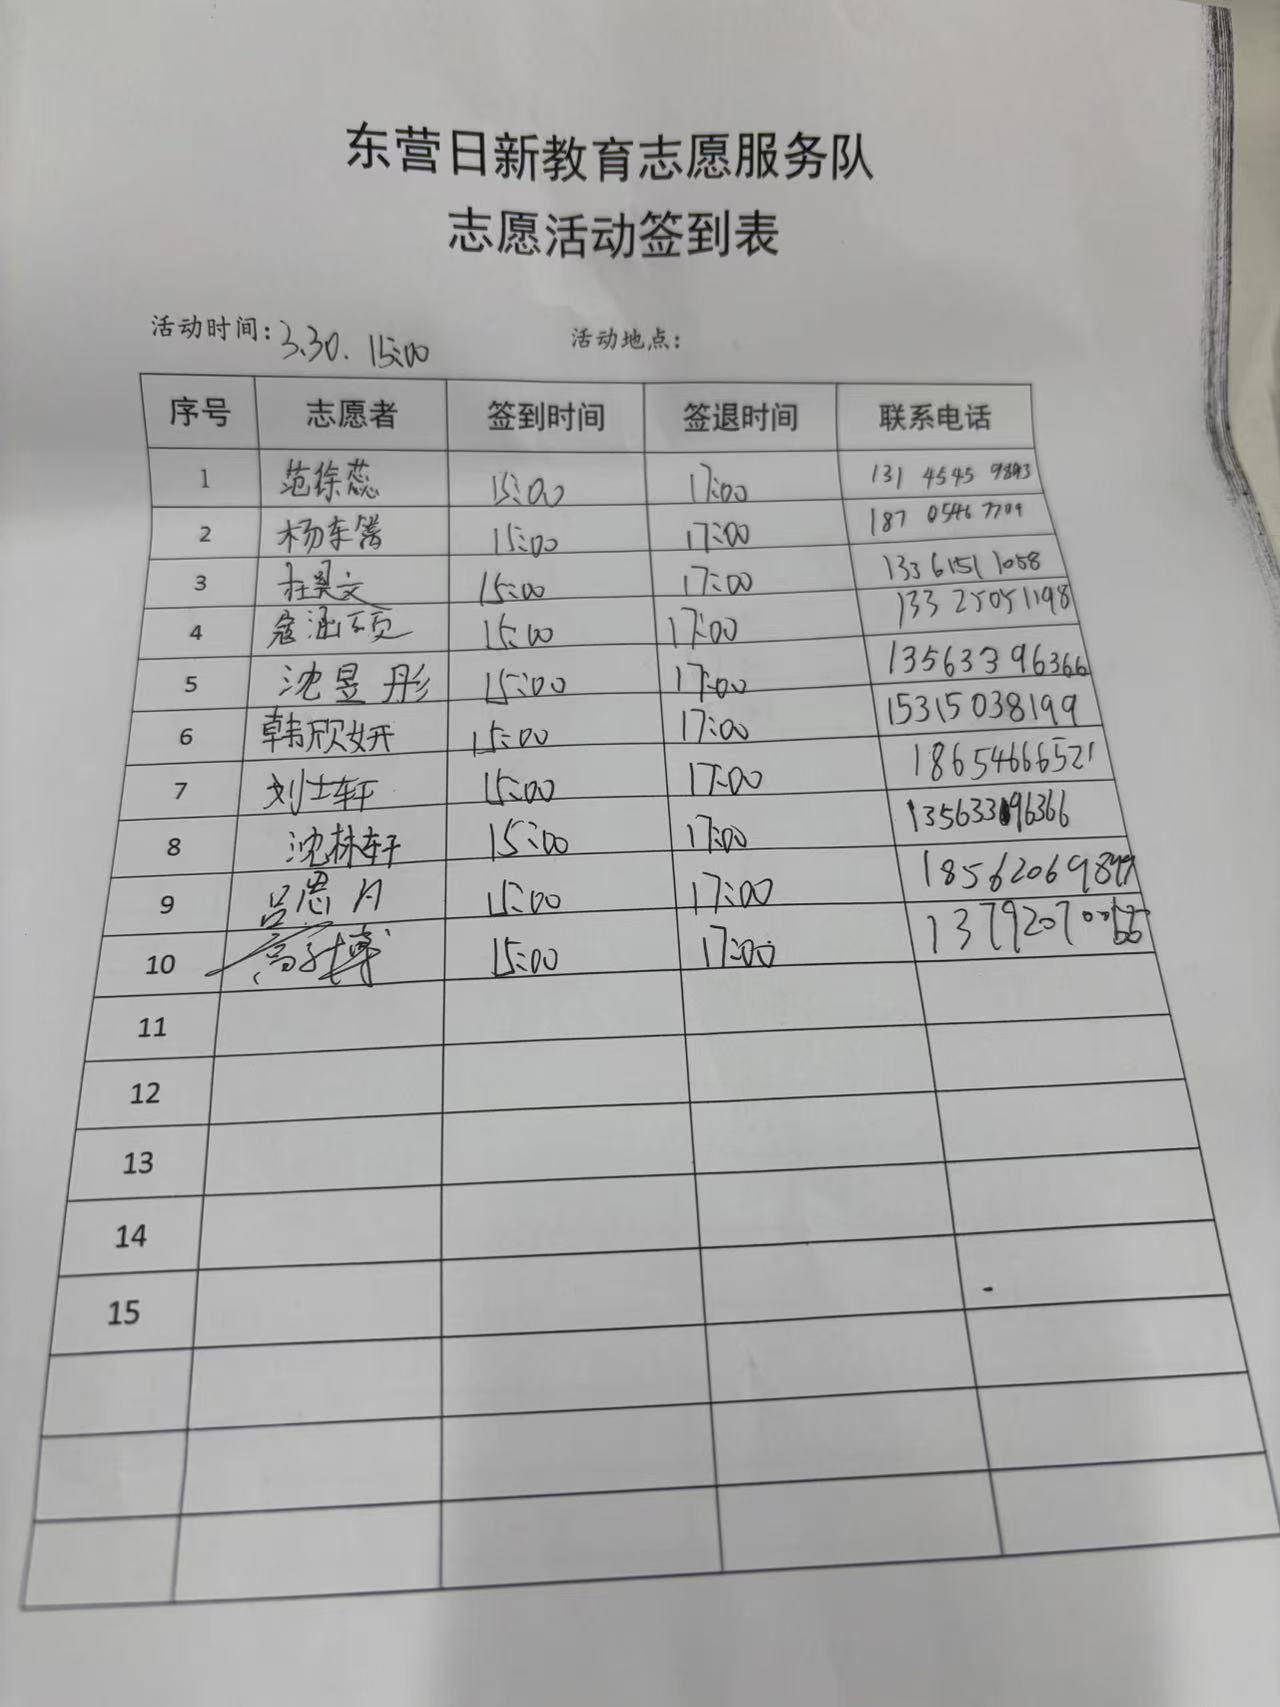 东营日新教育志愿服务队
志愿活动签到表
活动时间: 3.30. 15:00 活动地点:
序号 志愿者 签到时间 签退时间 联系电话
1 范徐蕊 15:00 17:00 131 4545 9893
2 杨东篱 15:00 17:00 187 0546 7709
3 杜昊文 15:00 17:00 133 6151 1058
4 寇涵硕 15:00 17:00 133 25051198
5 沈昱彤 15:00 17:00 13563396366
6 韩欣妍 15:00 17:00 15315038199
7 刘士轩 15:00 17:00 18654666521
8 沈林轩 15:00 17:00 13563396366
9 吕思月 15:00 17:00
10 高子博 15:00 17:00
11
12
13
14
15